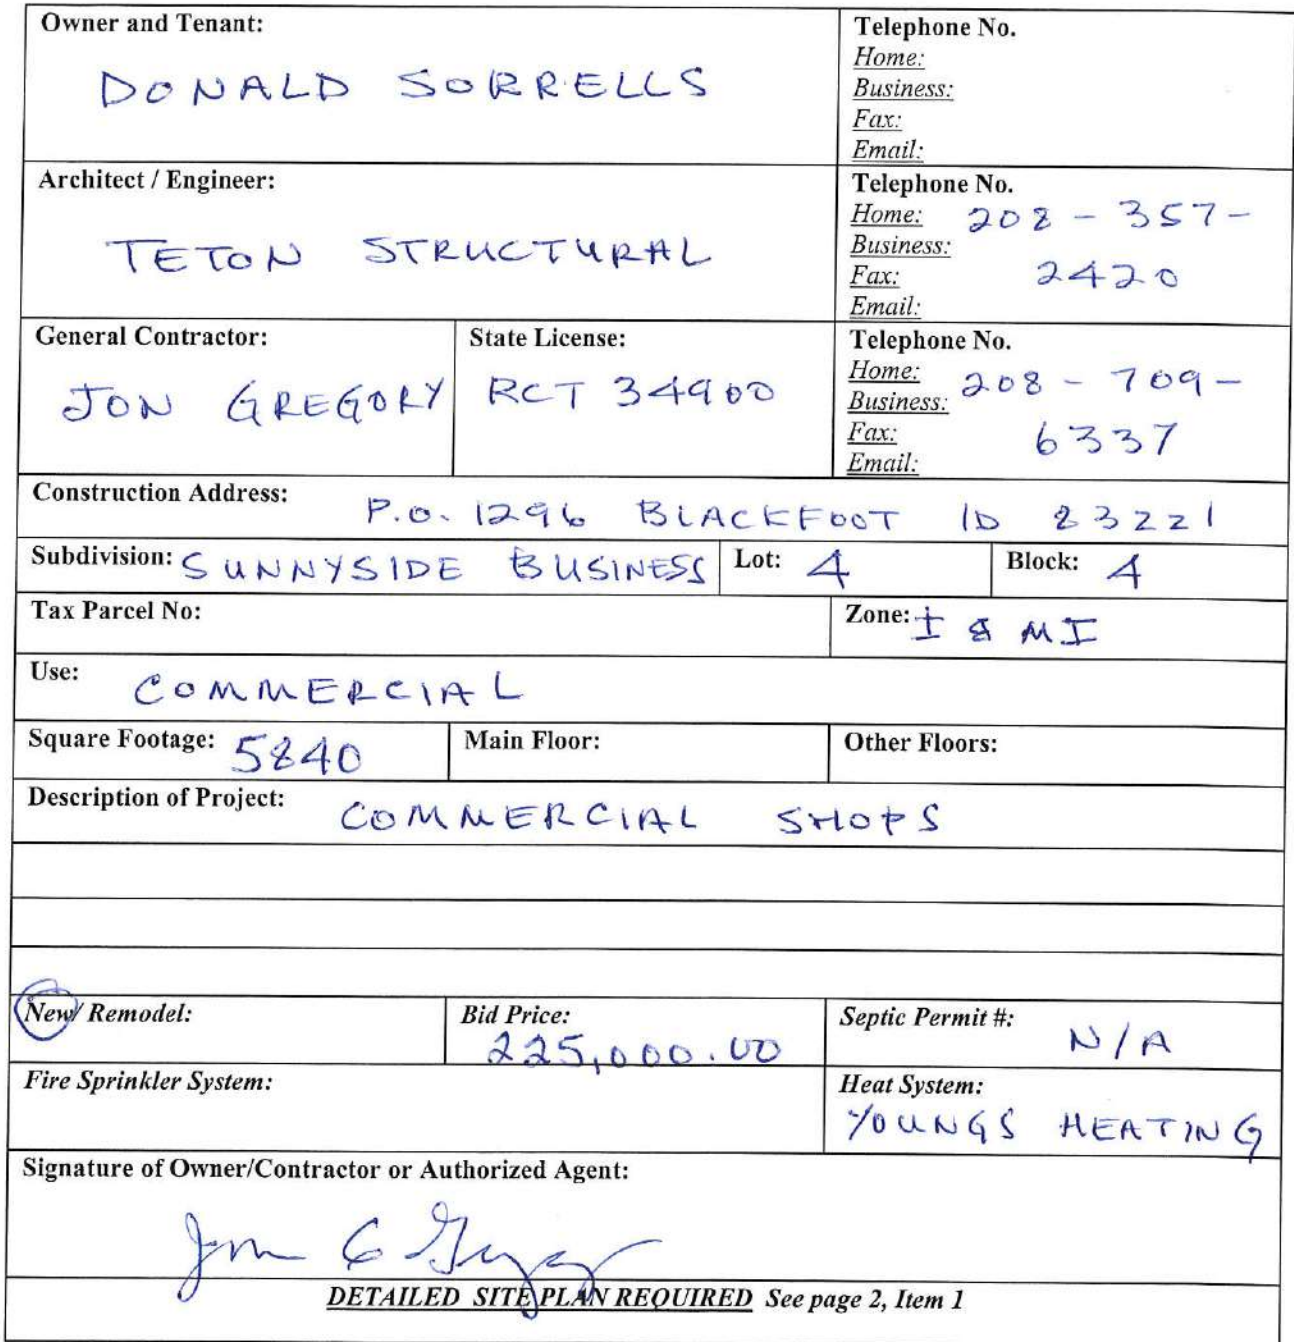 Owner and Tenant:
DONALD SORRELLS
Telephone No.
Home:
Business:
Fax:
Email:
Architect / Engineer:
TETON STRUCTURAL
Telephone No.
Home: 208-357-
Business:
Fax: 2420
Email:
General Contractor:
JON GREGORY
State License:
RCT 34900
Telephone No.
Home: 208-709-
Business:
Fax: 6337
Email:
Construction Address: P.O. 1296 BLACKFOOT ID 83221
Subdivision: SUNNYSIDE BUSINESS Lot: 4 Block: 4
Tax Parcel No: Zone: I & MI
Use: COMMERCIAL
Square Footage: 5840 Main Floor: Other Floors:
Description of Project: COMMERCIAL SHOPS
New/ Remodel:
Bid Price:
225,000.00
Septic Permit #: N/A
Fire Sprinkler System:
Heat System:
YOUNGS HEATING
Signature of Owner/Contractor or Authorized Agent:
Jon C Gregory
DETAILED SITE PLAN REQUIRED See page 2, Item 1